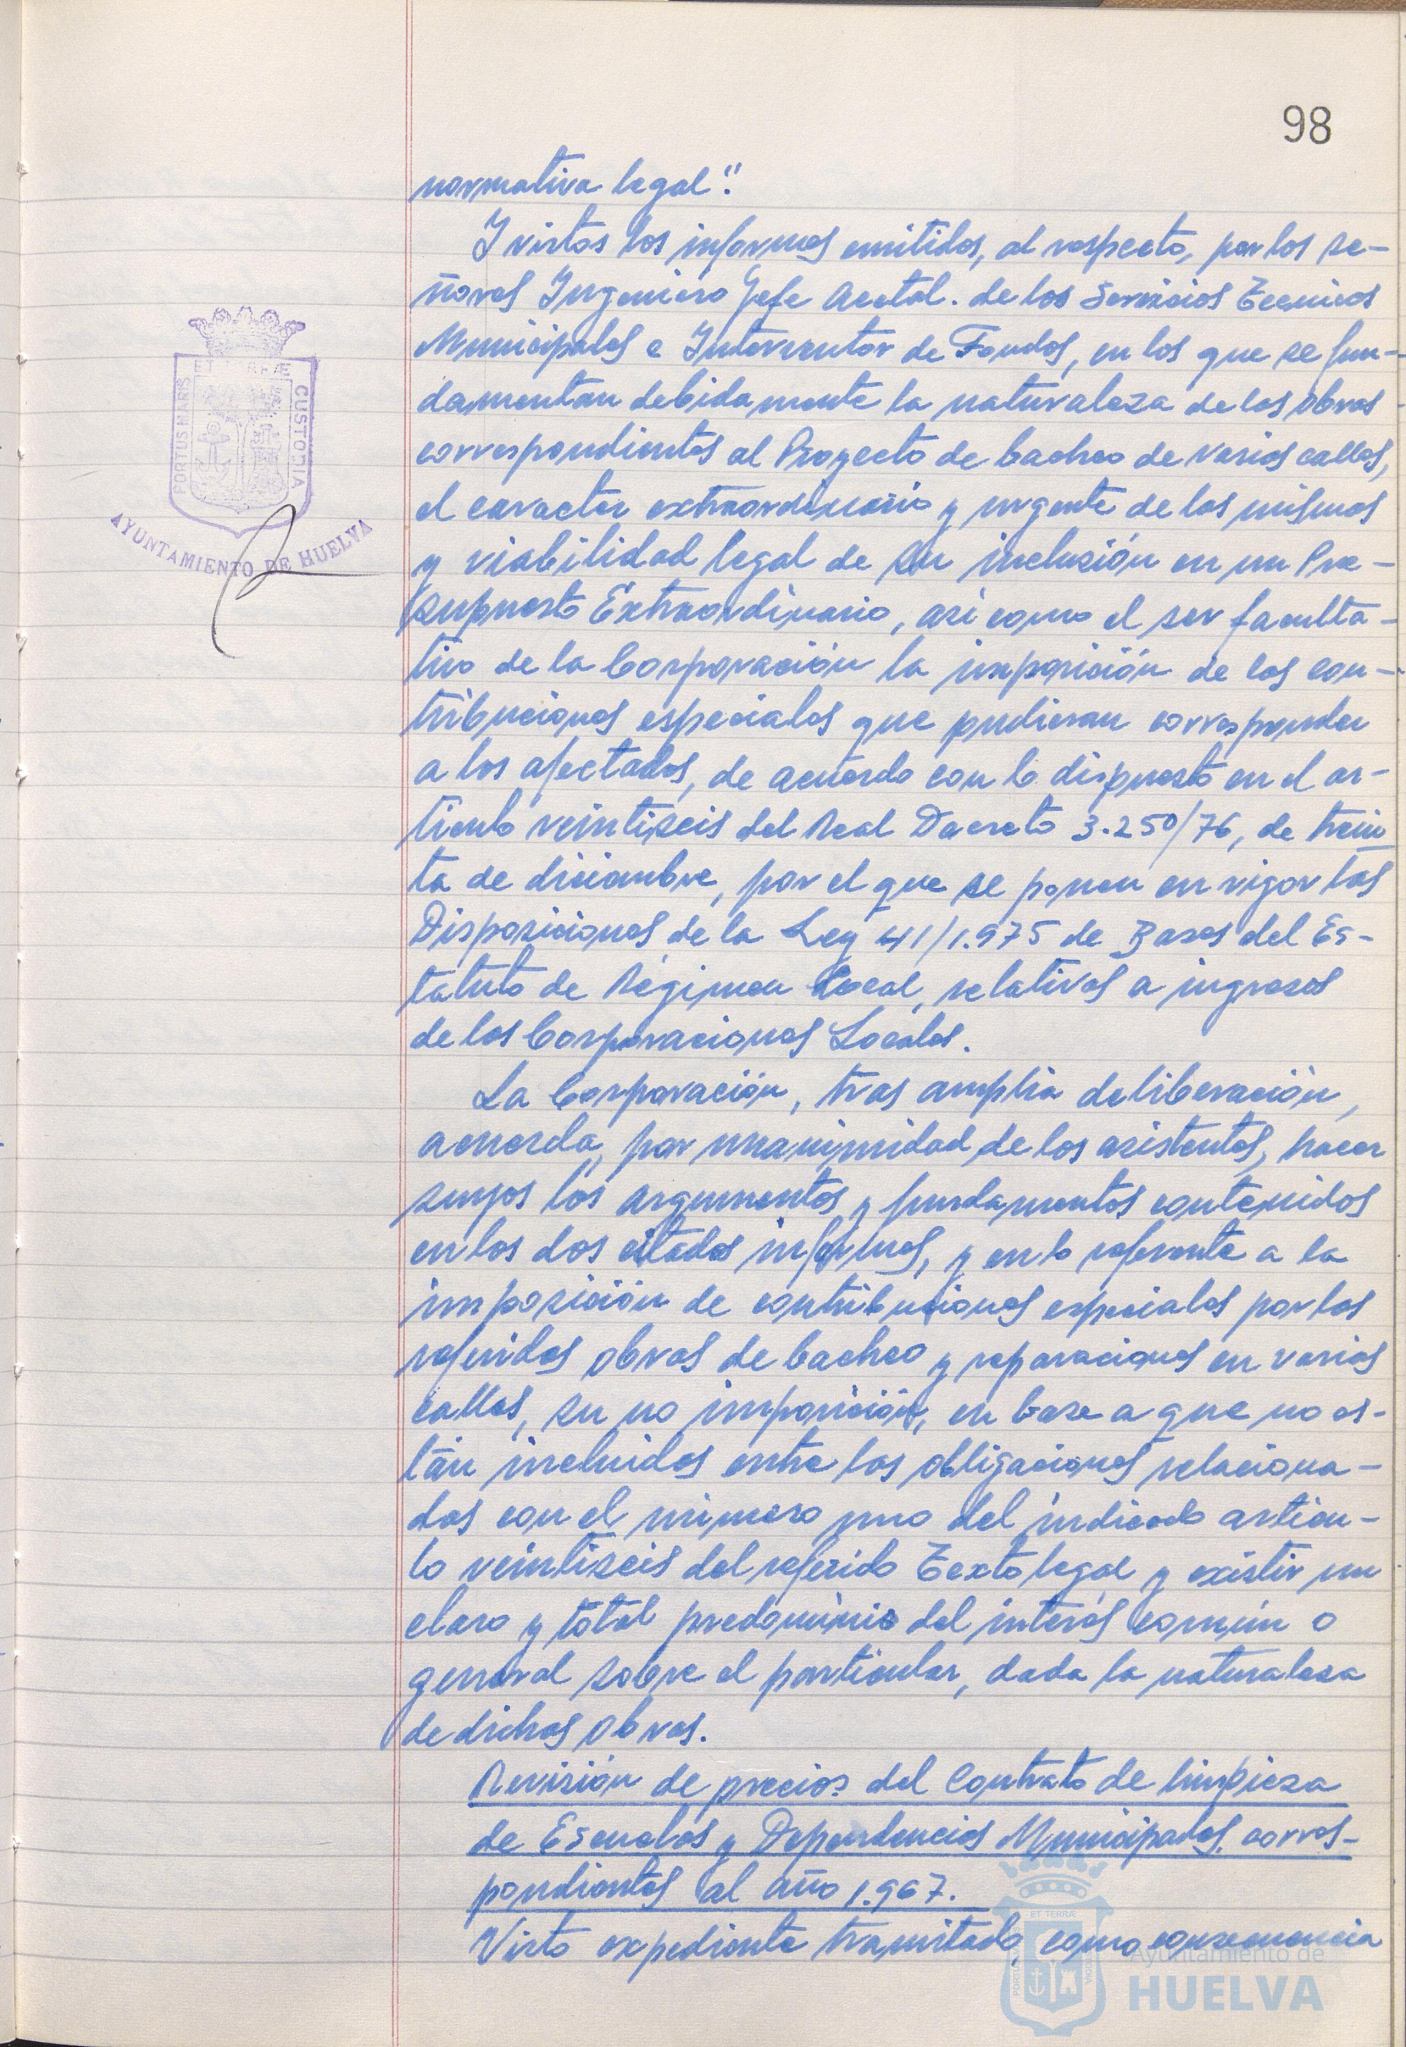 98
normativa legal".
Y vistos los informes emitidos, al respecto, por los se-
ñores Ingeniero Jefe Acctal. de los Servicios Tecnicos
Municipales e Interventor de Fondos, en los que se fun-
damentan debidamente la naturaleza de las obras
correspondientes al Proyecto de bacheo de varias calles,
el caracter extraordinario y urgente de las mismas
y viabilidad legal de su inclusión en un Pre-
supuesto Extraordinario, asi como el ser faculta-
tivo de la Corporación la imposición de las con-
tribuciones especiales que pudieran corresponder
a los afectados, de acuerdo con lo dispuesto en el ar-
tículo veintiseis del Real Decreto 3.250/76, de trein
ta de diciembre, por el que se ponen en vigor las
Disposiciones de la Ley 41/1.975 de Bases del Es-
tatuto de Régimen Local, relativas a ingresos
de las Corporaciones Locales.
La Corporación, tras amplia deliberación,
acuerda, por unanimidad de los asistentes, hacer
suyos los argumentos y fundamentos contenidos
en los dos citados informes, y en lo referente a la
imposición de contribuciones especiales por las
referidas obras de bacheo y reparaciones en varias
calles, su no imposición, en base a que no es-
tán incluidas entre las obligaciones relaciona-
das con el número uno del indicado artícu-
lo veintiseis del referido Texto legal y existir un
claro y total predominio del interés común o
general sobre el particular, dada la naturaleza
de dichas obras.
Revisión de precios del Contrato de limpieza
de Escuelas y Dependencias Municipales, corres-
pondientes al año 1.967.
Visto expediente tramitado como consecuencia
PORTUS MARIS ET TERRÆ CUSTODIA
AYUNTAMIENTO DE HUELVA
Ayuntamiento de
HUELVA